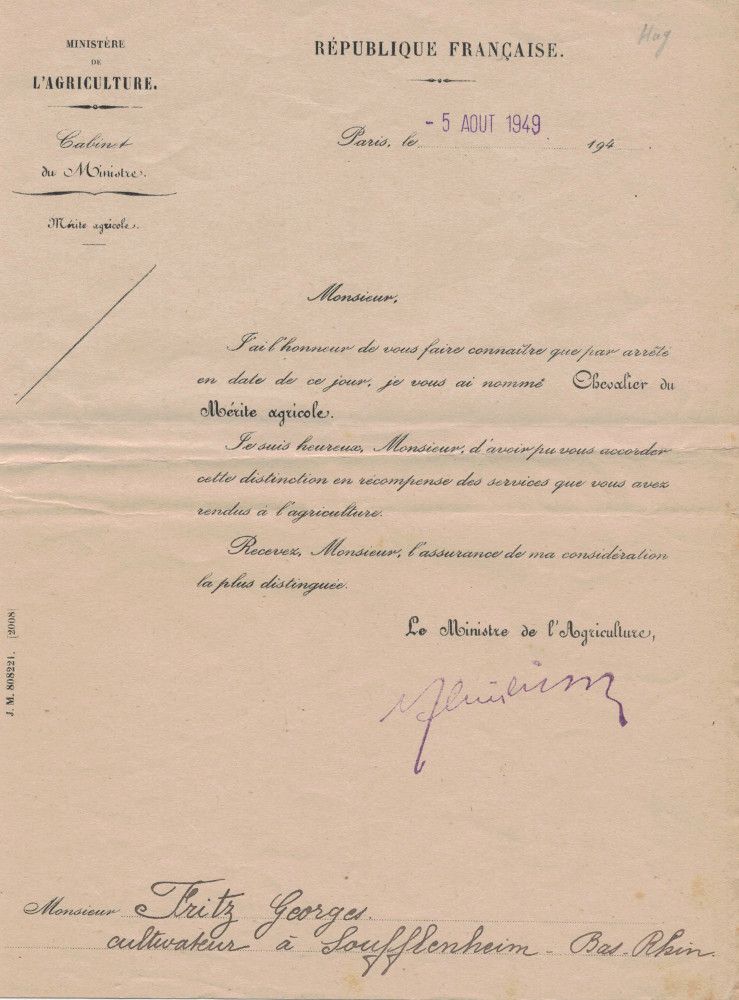 MINISTÈRE
DE
L'AGRICULTURE.
Cabinet
du Ministre.
Mérite agricole.
RÉPUBLIQUE FRANÇAISE.
Paris, le - 5 AOUT 1949 194
Monsieur,
J'ai l'honneur de vous faire connaître que par arrêté
en date de ce jour, je vous ai nommé Chevalier du
Mérite agricole.
Je suis heureux, Monsieur, d'avoir pu vous accorder
cette distinction en récompense des services que vous avez
rendus à l'agriculture.
Recevez, Monsieur, l'assurance de ma considération
la plus distinguée.
Le Ministre de l'Agriculture,
J. M. 808221. [2008]
Monsieur Fritz Georges.
cultivateur à Soufflenheim - Bas-Rhin.